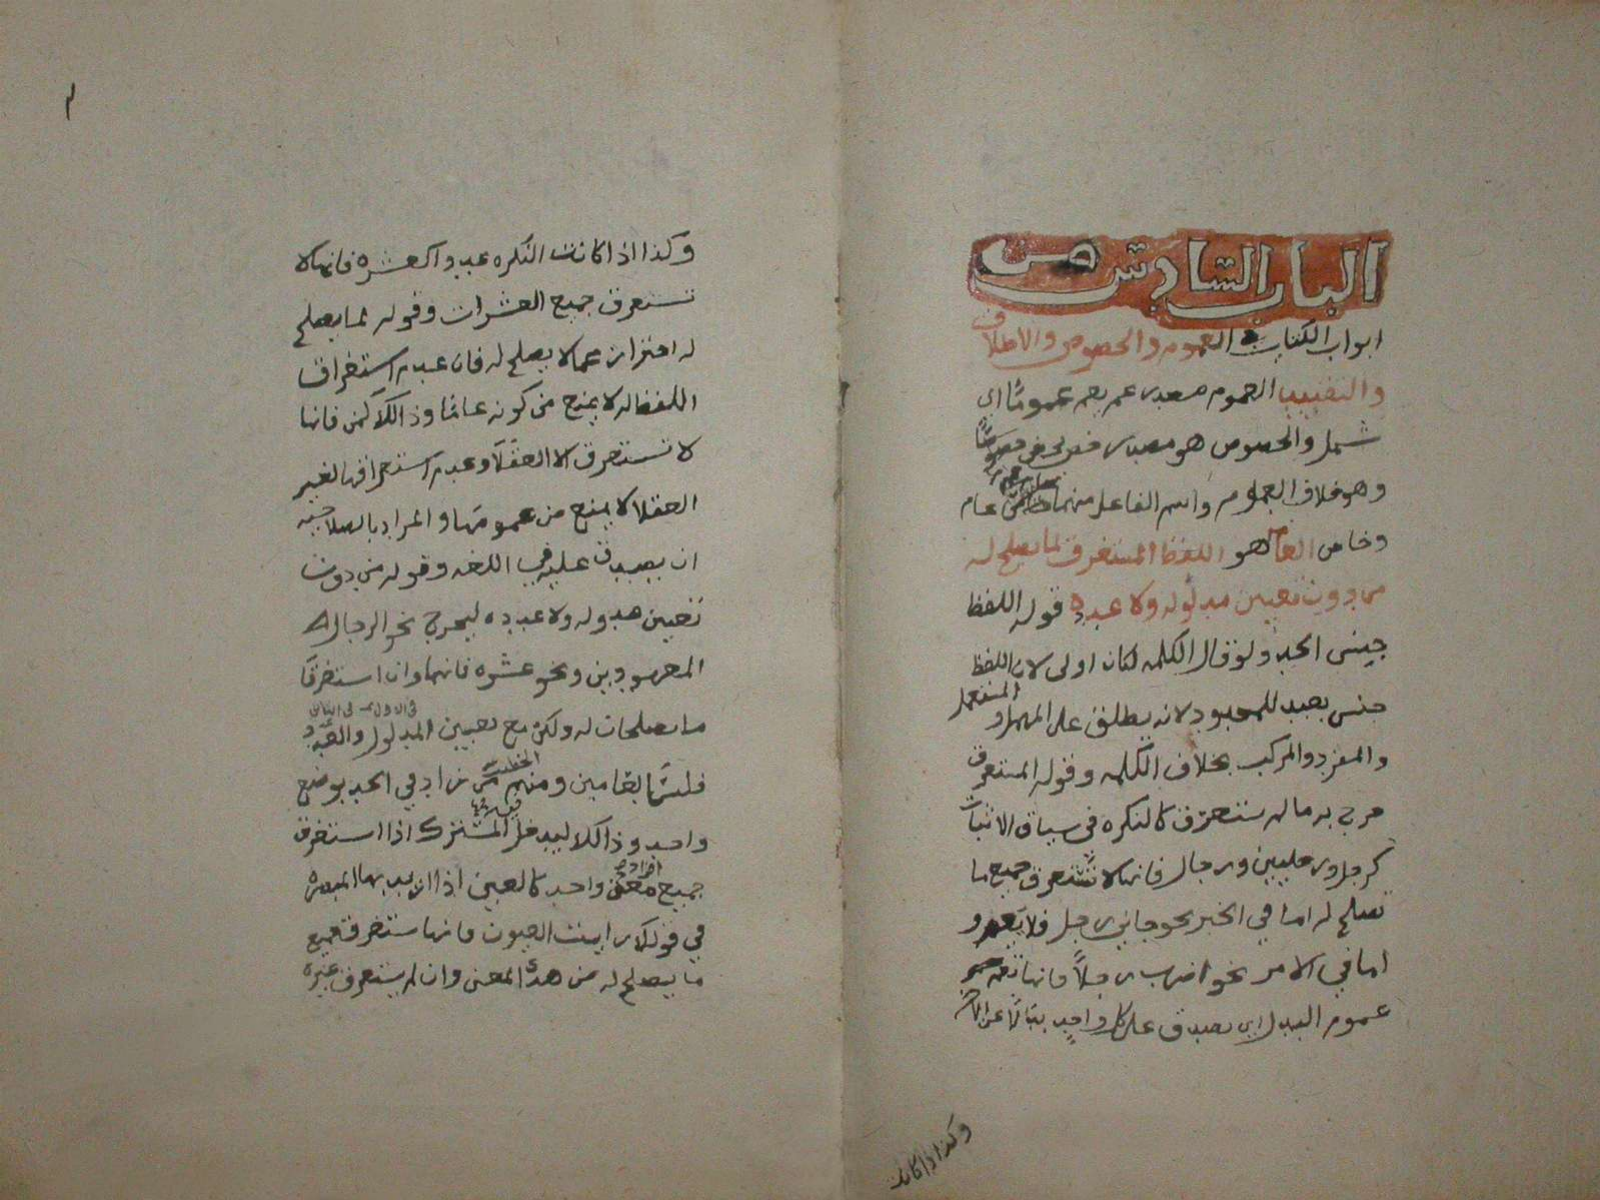 الباب السادس من
ابواب الكتاب في العموم والخصوص والاطلاق
والتقييد العموم مصدر عم يعم عموما اي
شمل والخصوص هو مصدر خص يخص خصوصا
وهو خلاف العموم واسم الفاعل منهما عام
وخاص العام هو اللفظ المستغرق لما يصلح له
من دون تعيين مدلوله ولا عدده قوله اللفظ
جنس الحد ولو قال الكلمه لكان اولى لان اللفظ
جنس بعيد للمحدود لانه يطلق على المهمل والمستعمل
والمفرد والمركب بخلاف الكلمه وقوله المستغرق
خرج به ما لم يستغرق كالنكره في سياق الاثبات
كرجل ورجلين ورجال فانها لا تستغرق جميع ما
تصلح له اما في الخبر نحو جاني رجل فلا تعم و
اما في الامر نحو اضرب رجلا فانها تعم
عموم البدل اي يصدق على كل واحد بدلا عن الاخر
وكذا اذا كانت
٢
وكذا اذا كانت النكره عددا كعشره فانها لا
تستغرق جميع العشرات وقوله لما يصلح
له احتراز عما لا يصلح له فان عدم استغراق
اللفظ له لا يمنع من كونه عاما وذلك كمن فانها
لا تستغرق الا العقلا وعدم استغراقها لغير
العقلا لا يمنع من عمومها والمراد بالصلاحيه
ان يصدق عليه في اللغه وقوله من دون
تعيين مدلوله ولا عدده ليخرج نحو الرجال
المعهودين ونحو عشره فانهما وان استغرقا
ما يصلحان له ولكن مع تعيين المدلول في الاول والعدد في الثاني
فليسا بعامين ومنهم من زاد في الحد بوضع
واحد وذلك ليدخل المشترك اذا استغرق
جميع افراد معنى واحد كالعين اذا اريد بها المبصره
في قولك رايت العيون فانها مستغرقه جميع
ما يصلح له من هذا المعنى وان لم يستغرق غيره